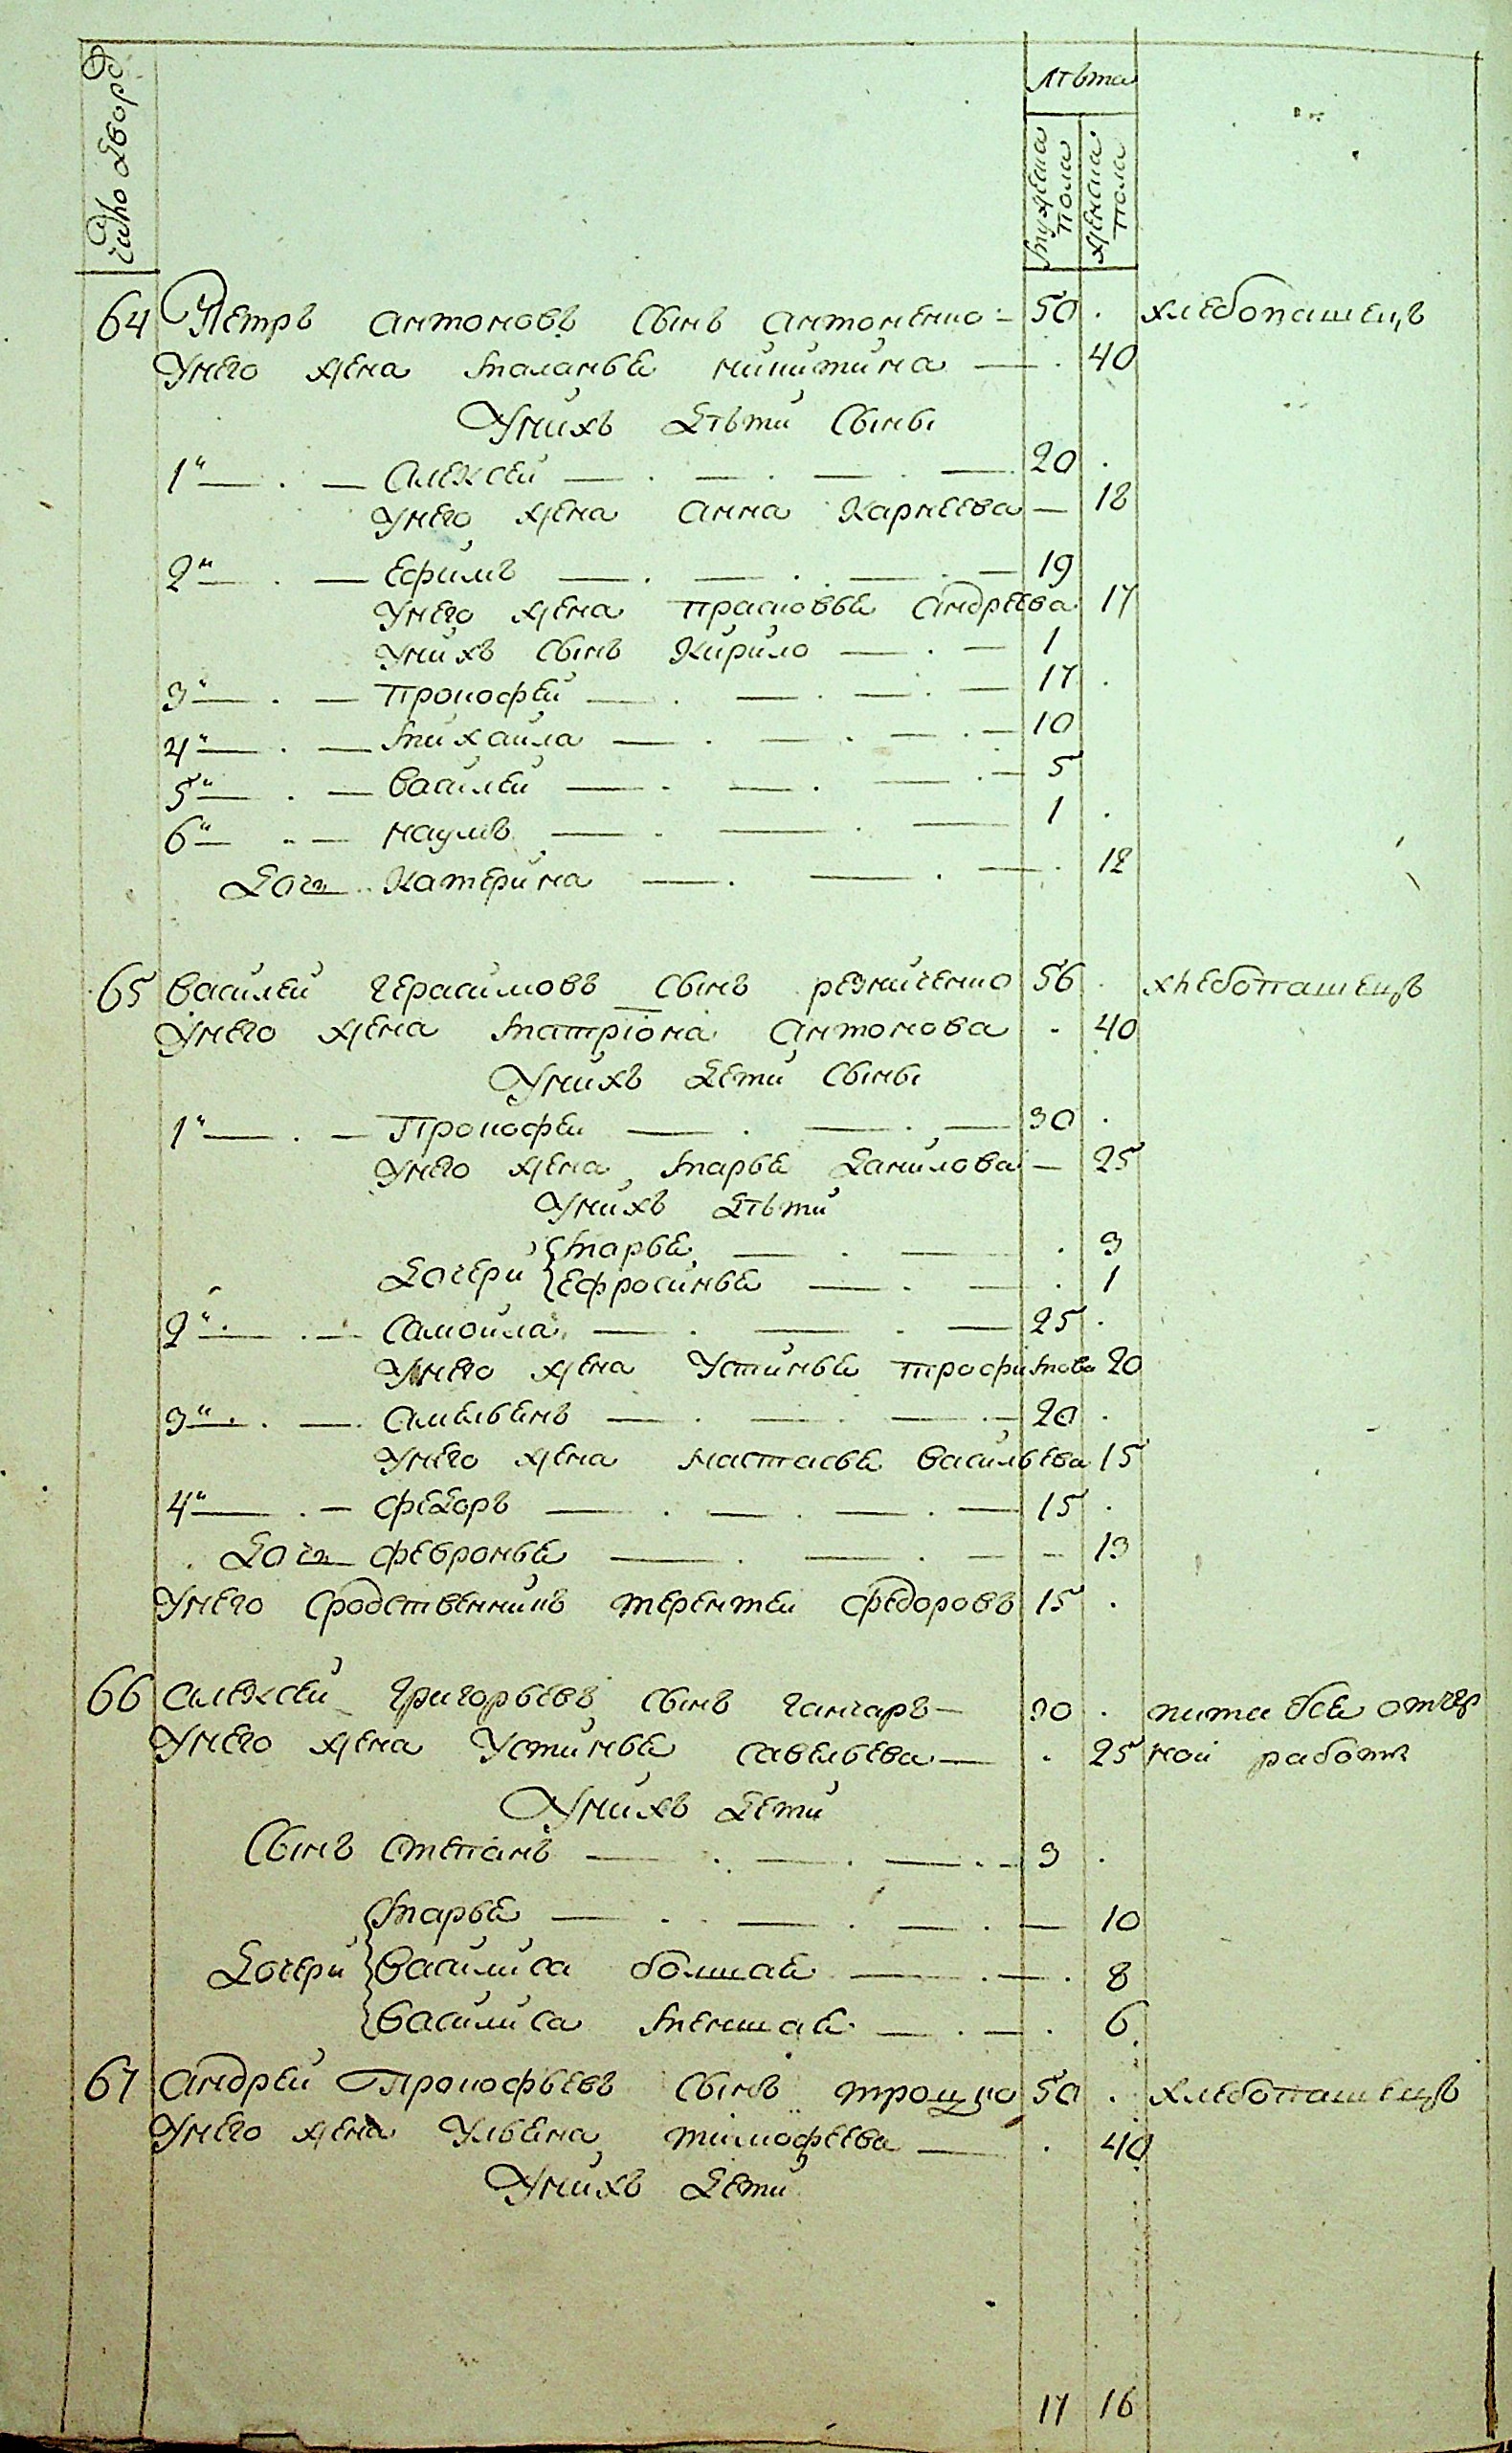 Число дворо
лѣта
мужеска пола
женска пола
64 Петръ антоновъ сынъ антоненко 50 хлебопашецъ
Унего жена маланья никитина 40
Унихъ дѣти сыны
1й алексей 20
унего жена анна карнеева 18
2й ефимъ 19
унего жена прасковья андреева 17
унихъ сынъ кирило 1
3й прокофей 17
4й михаила 10
5й василей 5
6й наумъ 1
дочь катерина 12
65 василей герасимовъ сынъ резниченко 56 хлебопашецъ
Унего жена матріона антонова 40
Унихъ дети сыны
1й прокофеи 30
унего жена марья данилова 25
унихъ дѣти
дочери марья 3
ефросинья 1
2й самоила 25
унего жена устинья трофимова 20
3й амельянъ 20
унего жена настасья васильева 15
4й федоръ 15
дочь февронья 13
Унего сродственникъ терентеи федоровъ 15
66 алексей григорьевъ сынъ ганчаръ 30 пита бся отчер
Унего жена устинья савельева 25 ной работы
Унихъ дети
сынъ степанъ 3
дочери марья 10
василиса болшая 8
василиса меншая 6
67 андрей прокофьевъ сынъ троцко 50 хлебопашецъ
Унего жена ульяна тимофеева 40
Унихъ дети
17 16